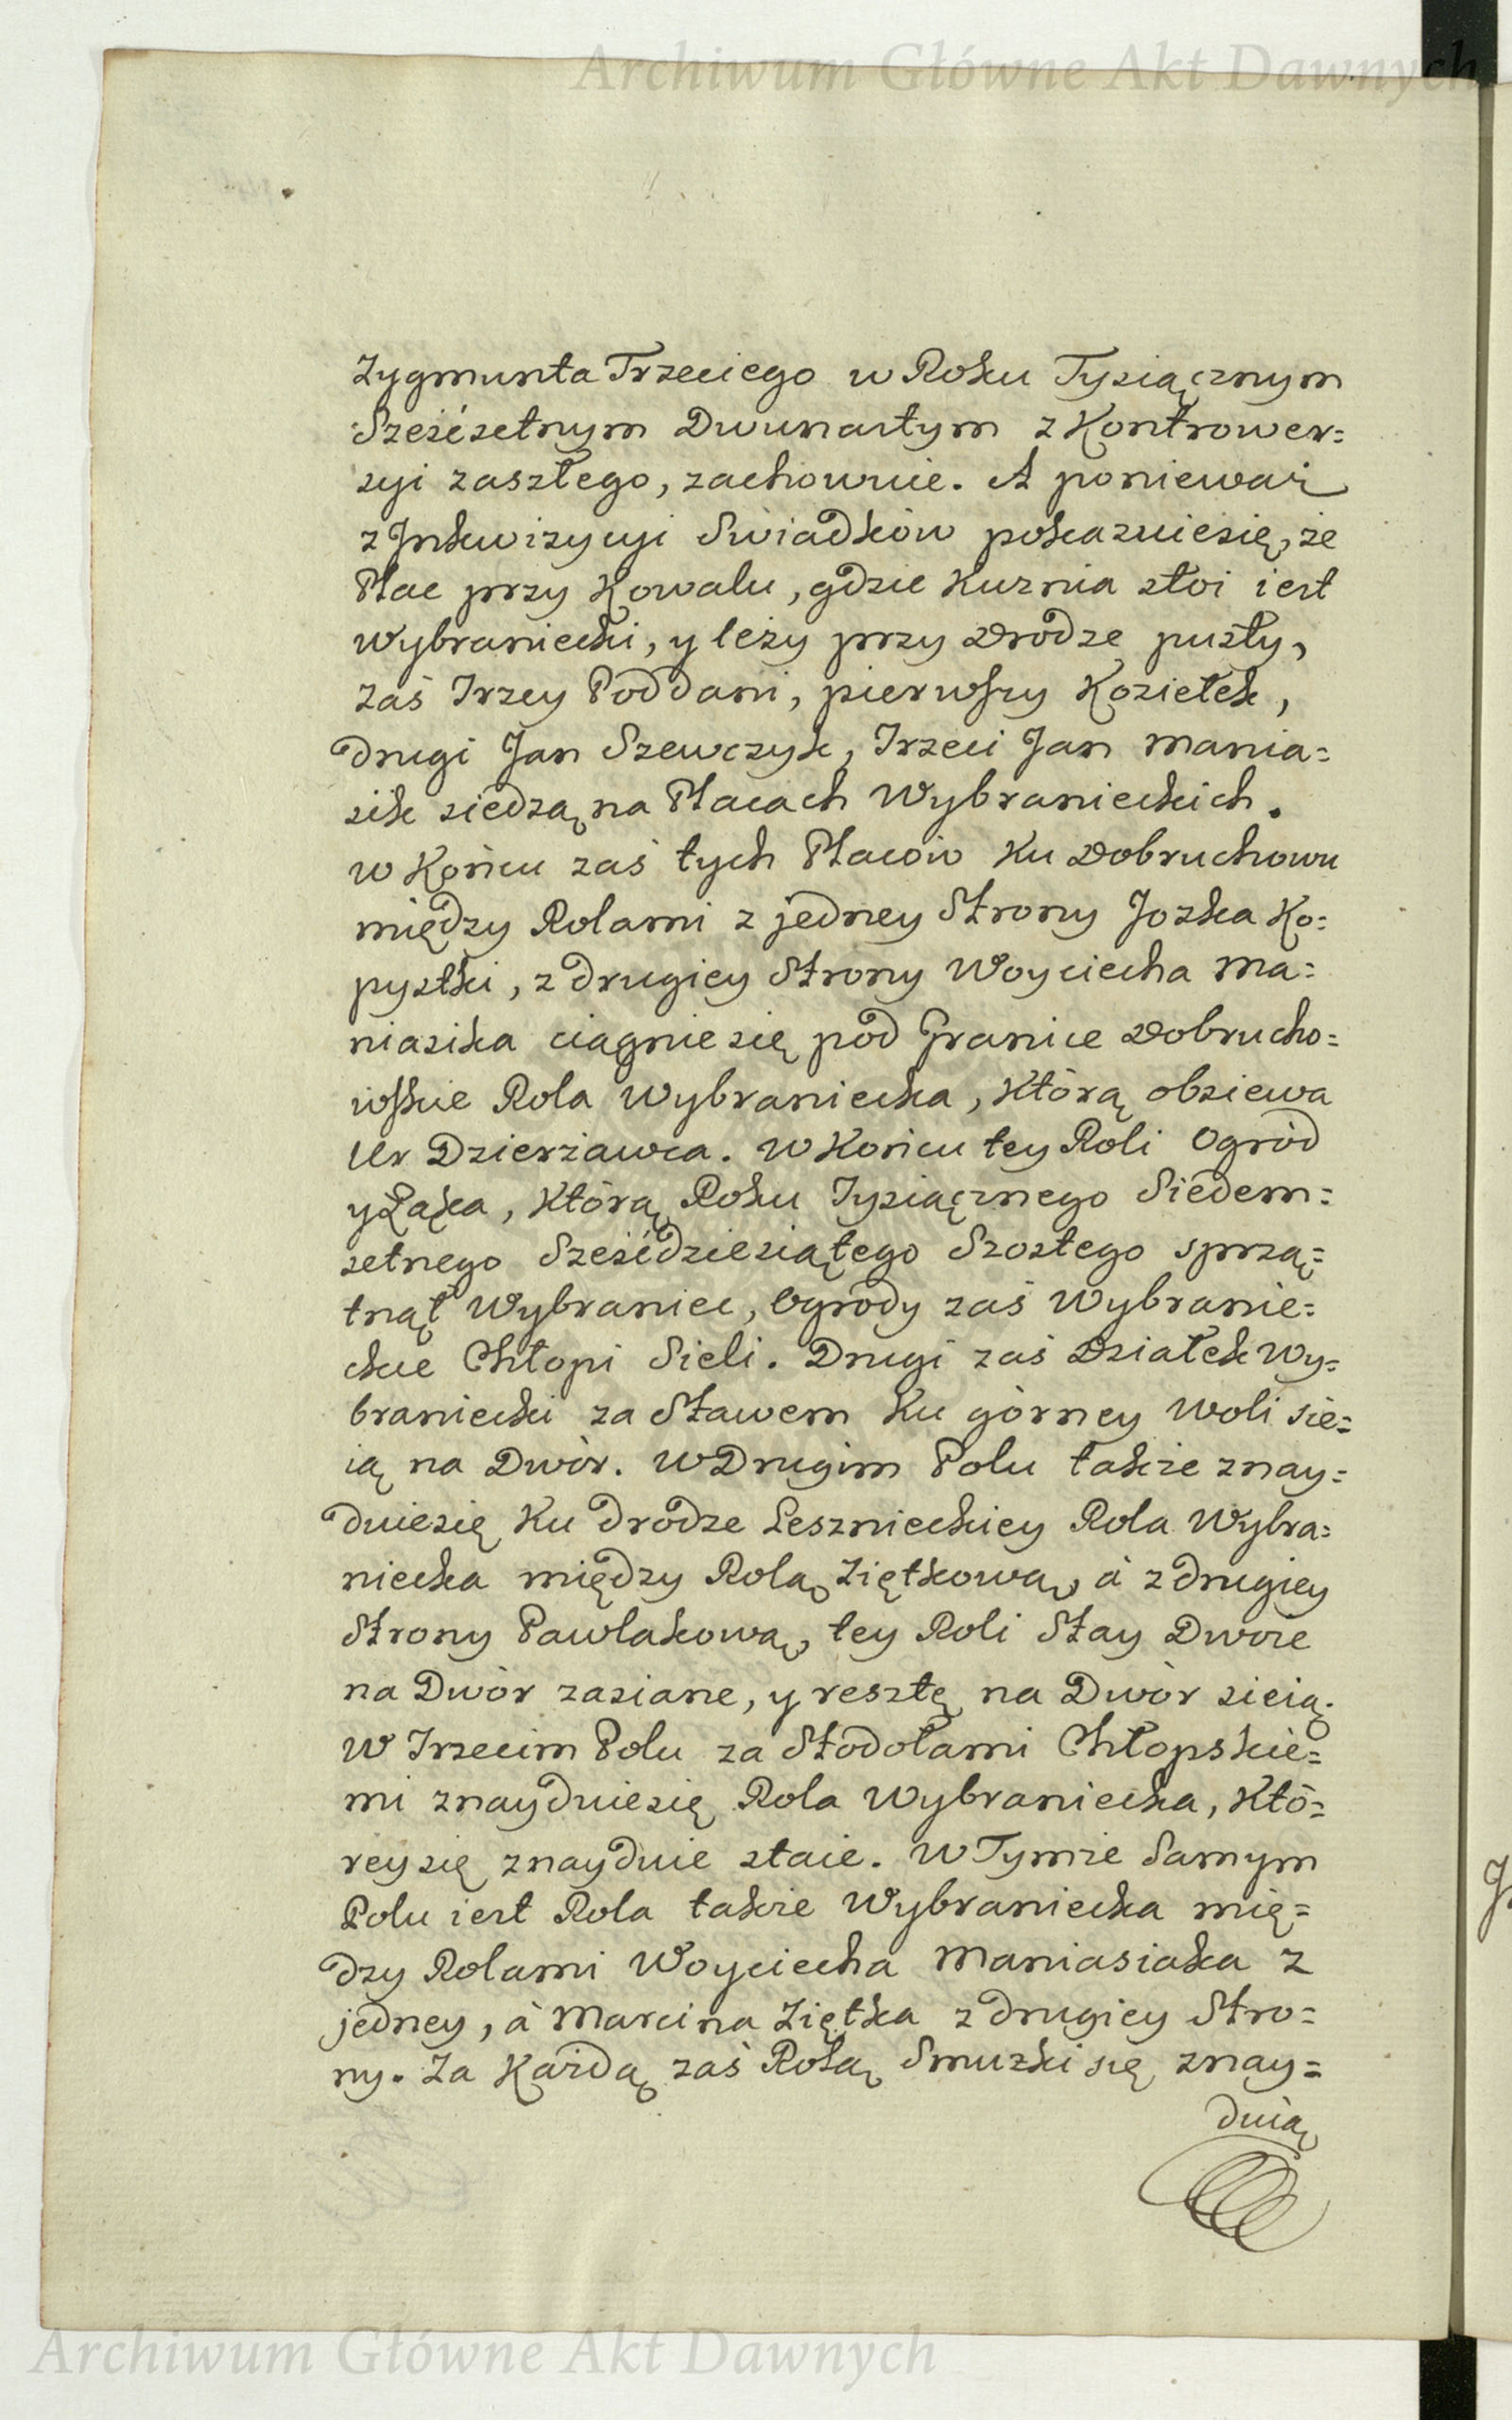 Archiwum Główne Akt Dawnych
Zygmunta Trzeciego w Roku Tysiącznym
Sześćsetnym Dwunastym z Kontrower=
syi zaszłego, zachowuie. A ponieważ
z Inkwizycyi Swiadków pokazuiesię, że
Plac przy Kowalu, gdzie Kuznia stoi iest
Wybraniecki, y leży przy Drodze pusty,
zaś Trzey Poddani, pierwszy Koziełek,
drugi Jan Szewczyk, Trzeci Jan Mania=
sik siedzą na Placach Wybranieckich.
w Końcu zaś tych Placów Ku Dobruchowu
między Rolami z jedney Strony Jozka Ko=
pystki, z drugiey Strony Woyciecha Ma=
niasika ciągnie się pod Granice Dobrucho=
wskie Rola Wybraniecka, Którą obsiewa
Ur Dzierżawca. W Końcu tey Roli Ogród
y Łąka, Którą Roku Tysiącznego Siedem=
setnego Sześćdziesiątego Szostego sprzą=
tnął Wybraniec, Ogrody zaś Wybranie=
ckie Chłopi Sieli. Drugi zaś Działek Wy=
braniecki za Stawem Ku górney Woli sie=
ią na Dwór. W Drugim Polu także znay=
duiesię Ku drodze Lesznieckiey Rola Wybra=
niecka między Rolą Ziętkową, à z drugiey
Strony Pawlakową, tey Roli Stay Dwoie
na Dwór zasiane, y resztę na Dwór sieią.
W Trzecim Polu za Stodołami Chłopskie=
mi znayduiesię Rola Wybraniecka, Któ=
rey się znayduie staie. W Tymże Samym
Polu iest Rola także Wybraniecka mię=
dzy Rolami Woyciecha Maniasiaka z
jedney, à Marcina Ziętka z drugiey Stro=
ny. Za Każdą zaś Rolą Smuzki się znay=
duią
Archiwum Główne Akt Dawnych